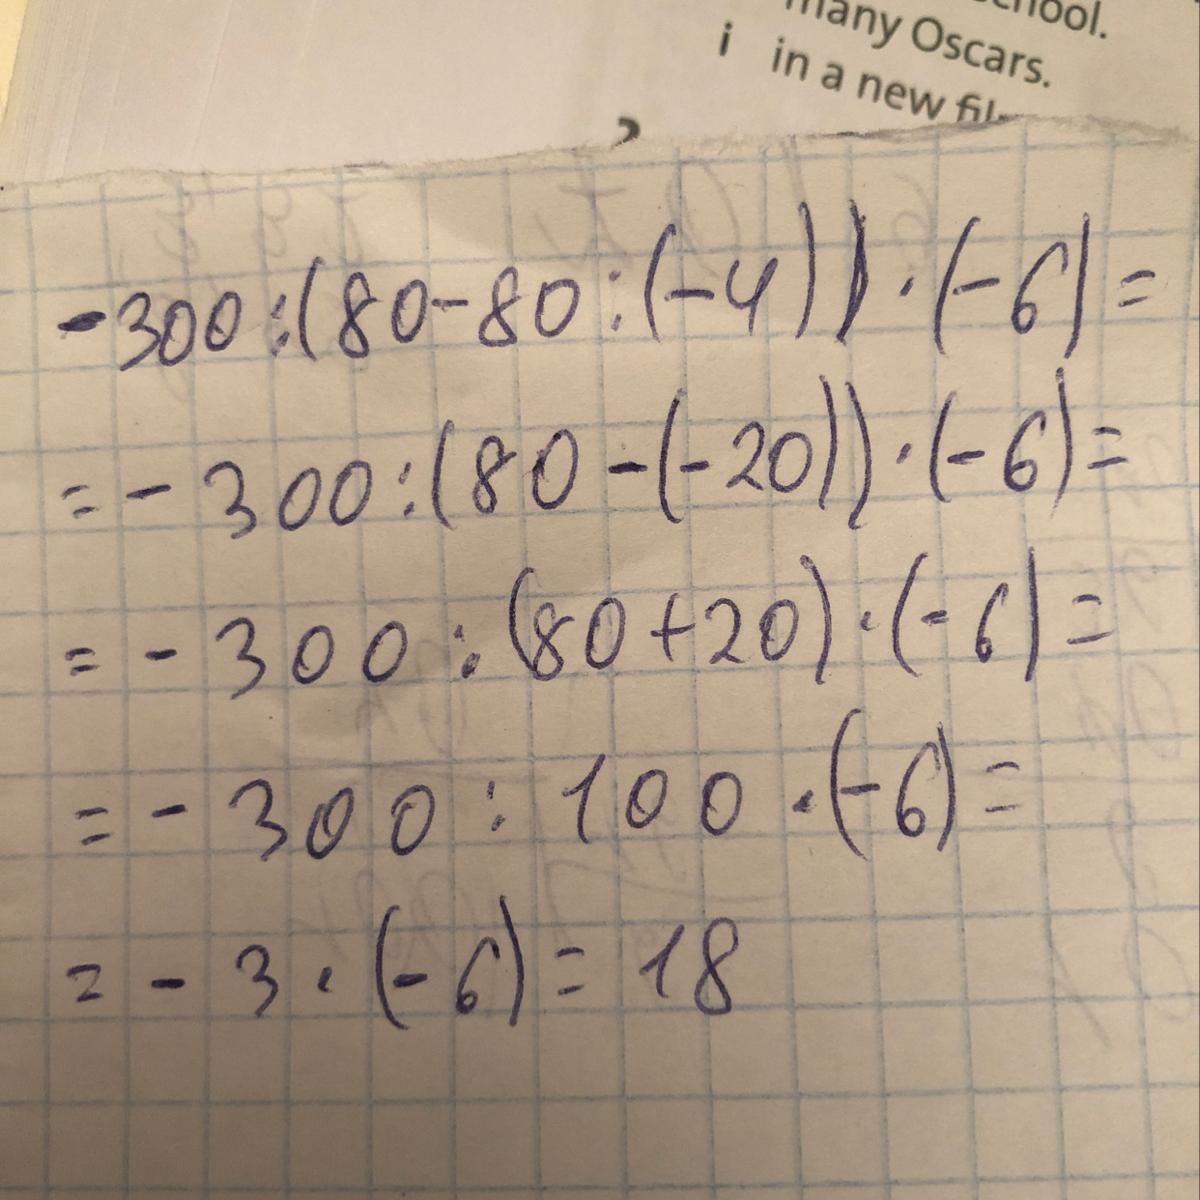 school.
many Oscars.
i in a new
-300:(80-80:(-4))·(-6)=
=-300:(80-(-20))·(-6)=
=-300:(80+20)·(-6)=
=-300:100·(-6)=
=-3·(-6)=18